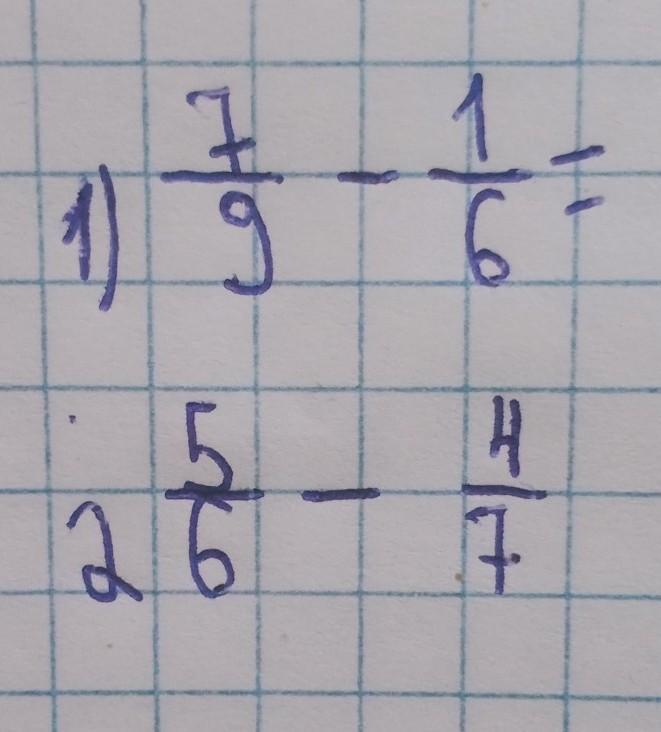 1) 7/9 - 1/6 =
2 5/6 - 4/7